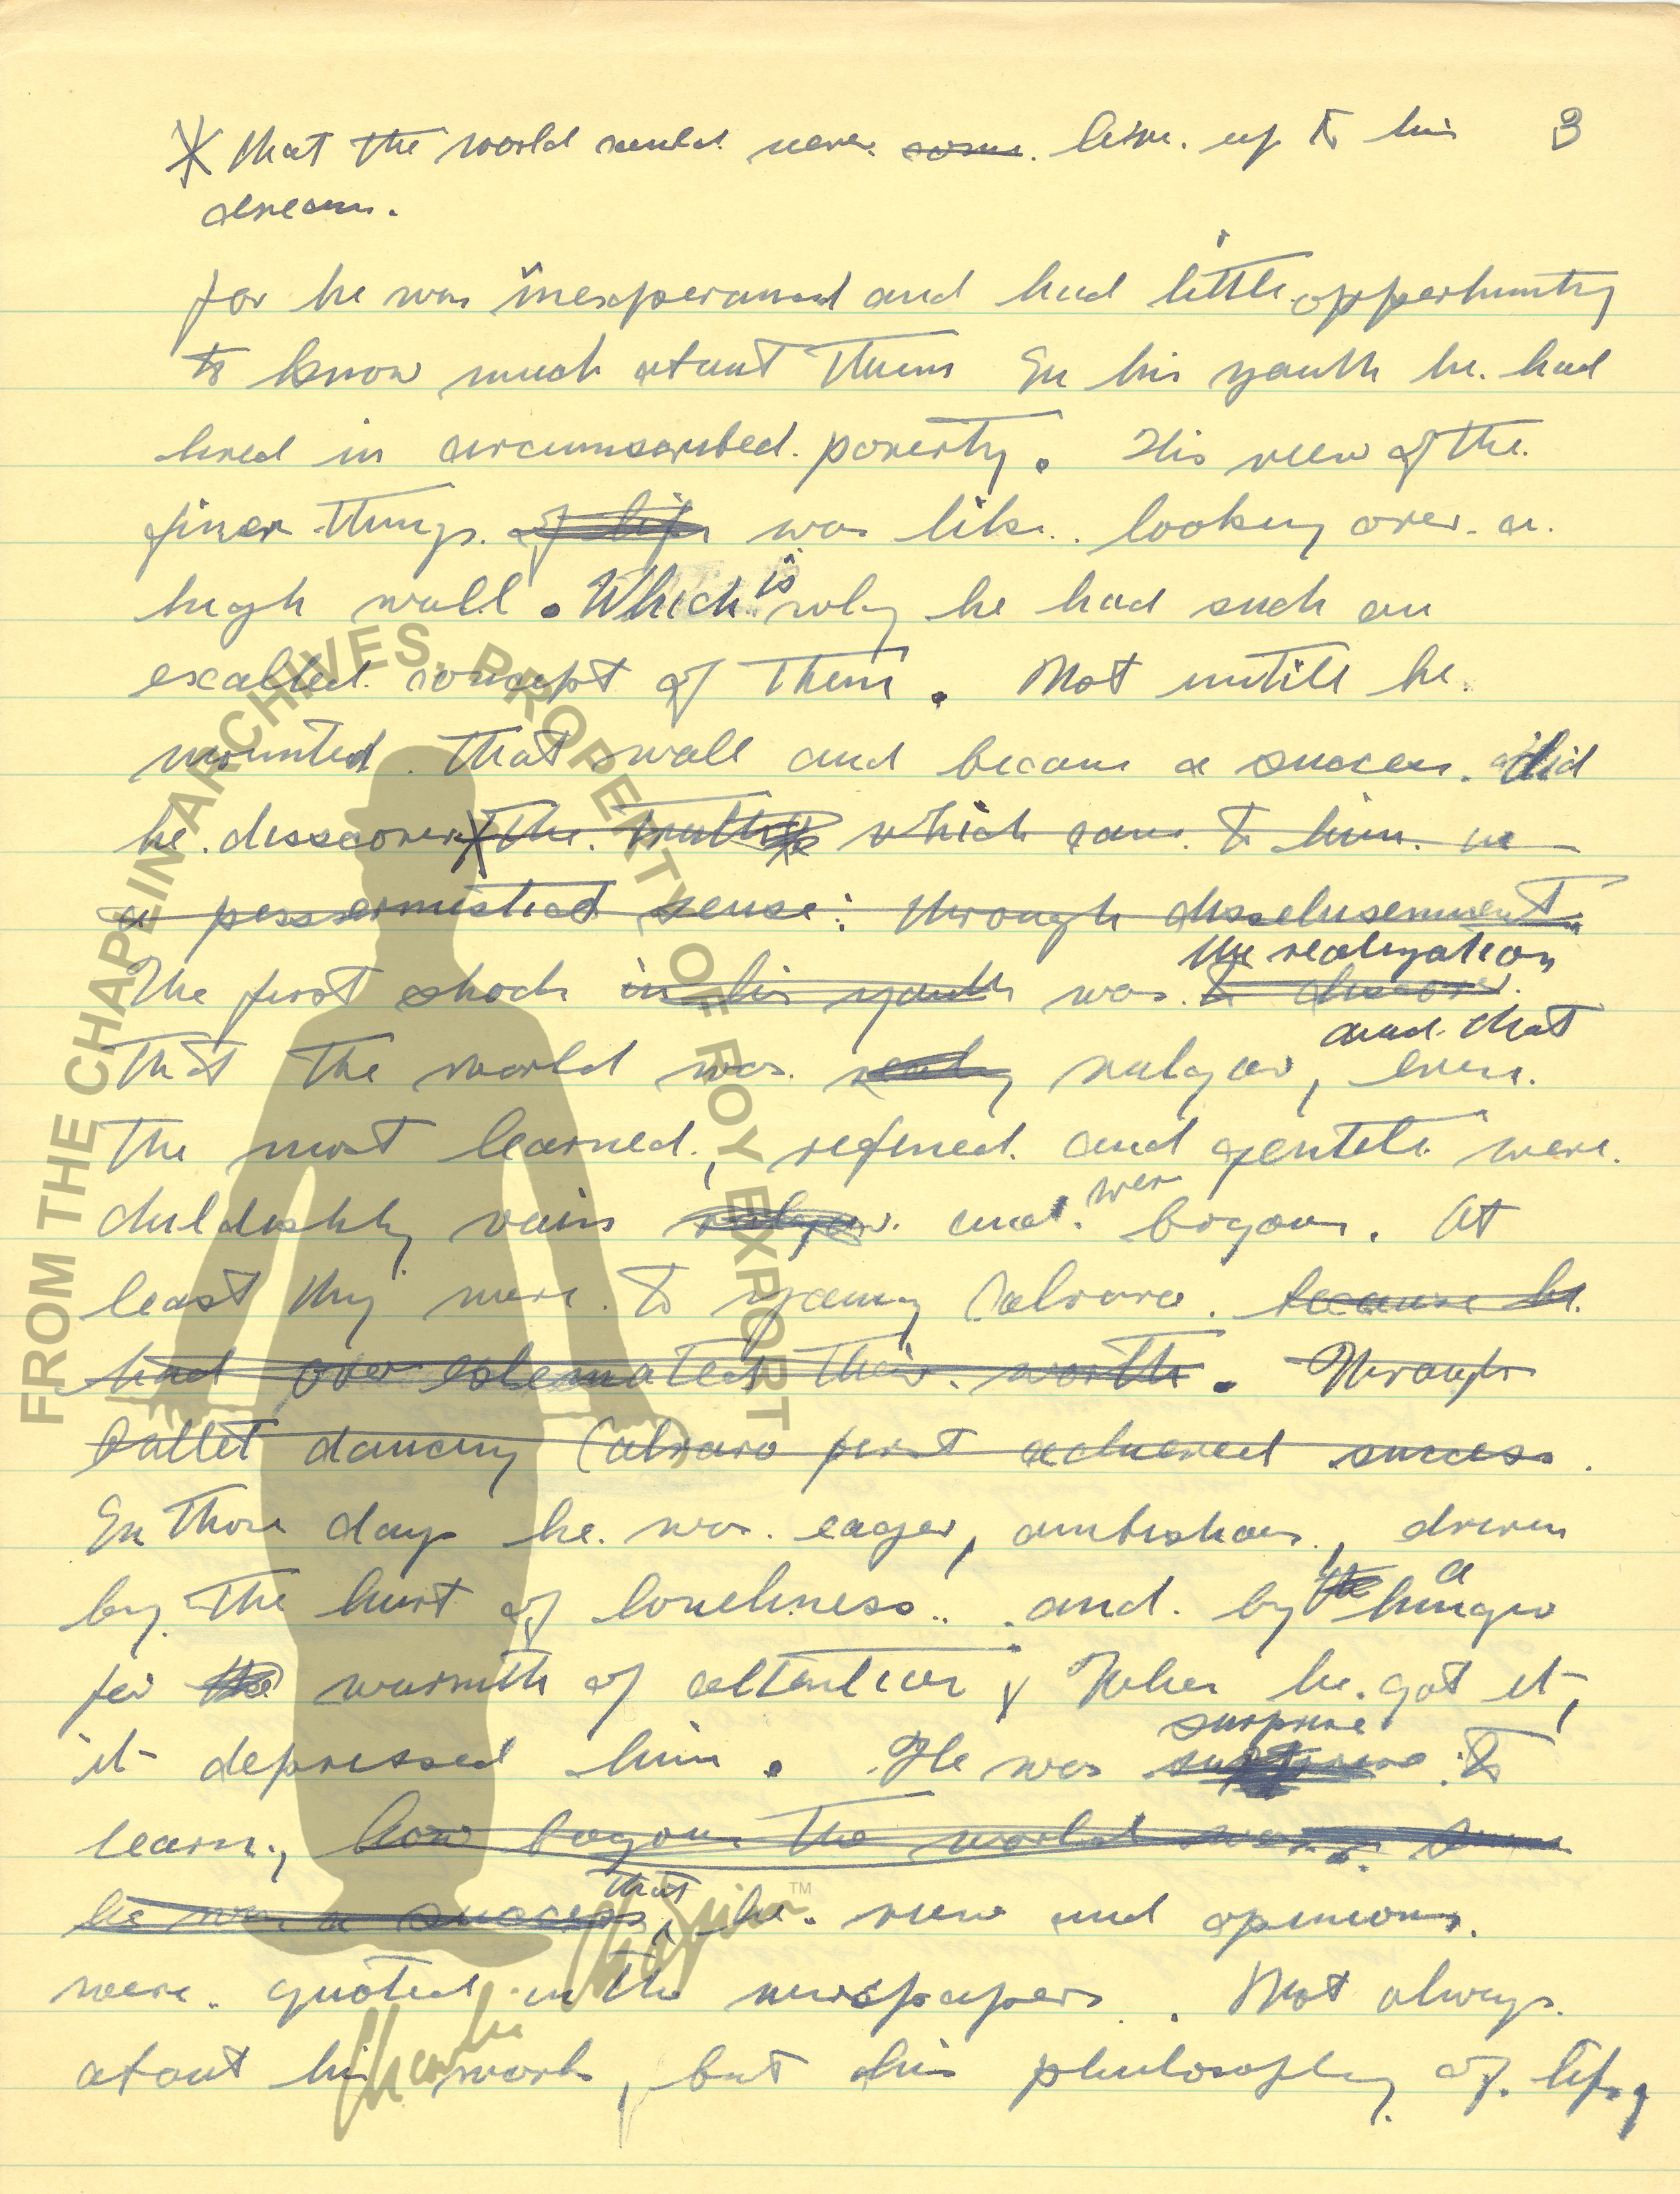 * that the world could never some live up to his 3
dream.
for he was inexperianced and had little opportunity
to know much about them In his youth he had
lived in circumscribed poverty. His view of the
finer things of life was like looking over a
high wall. Which is why he had such an
exalted concept of them. Not untill he
mounted that wall and became a success did
he disscover * the truth which came to him in
a pessermisticad sense: through disselusenment
the realization
The first shock in his youth was to discover
and that
that the world was realy vulgar, even
the most learned, refined and genteel were
were
childishly vain vulgar and bogous. At
least they were to young Calvaro because he
had over estemated their worth. Through
ballet dancing Calvaro first achieved success.
In those days he was eager, ambishous, driven
by the hurt of loneliness and by the a hunger
for the warmth of attention & When he got it,
surprise
it depressed him. He was to
learn, how bogous the world was
he was a success, that he view and opinions
were quoted in the newspapers. Not always
about his work, but his philosophy of life,
FROM THE CHAPLIN ARCHIVES. PROPERTY OF ROY EXPORT
Charlie Chaplin™